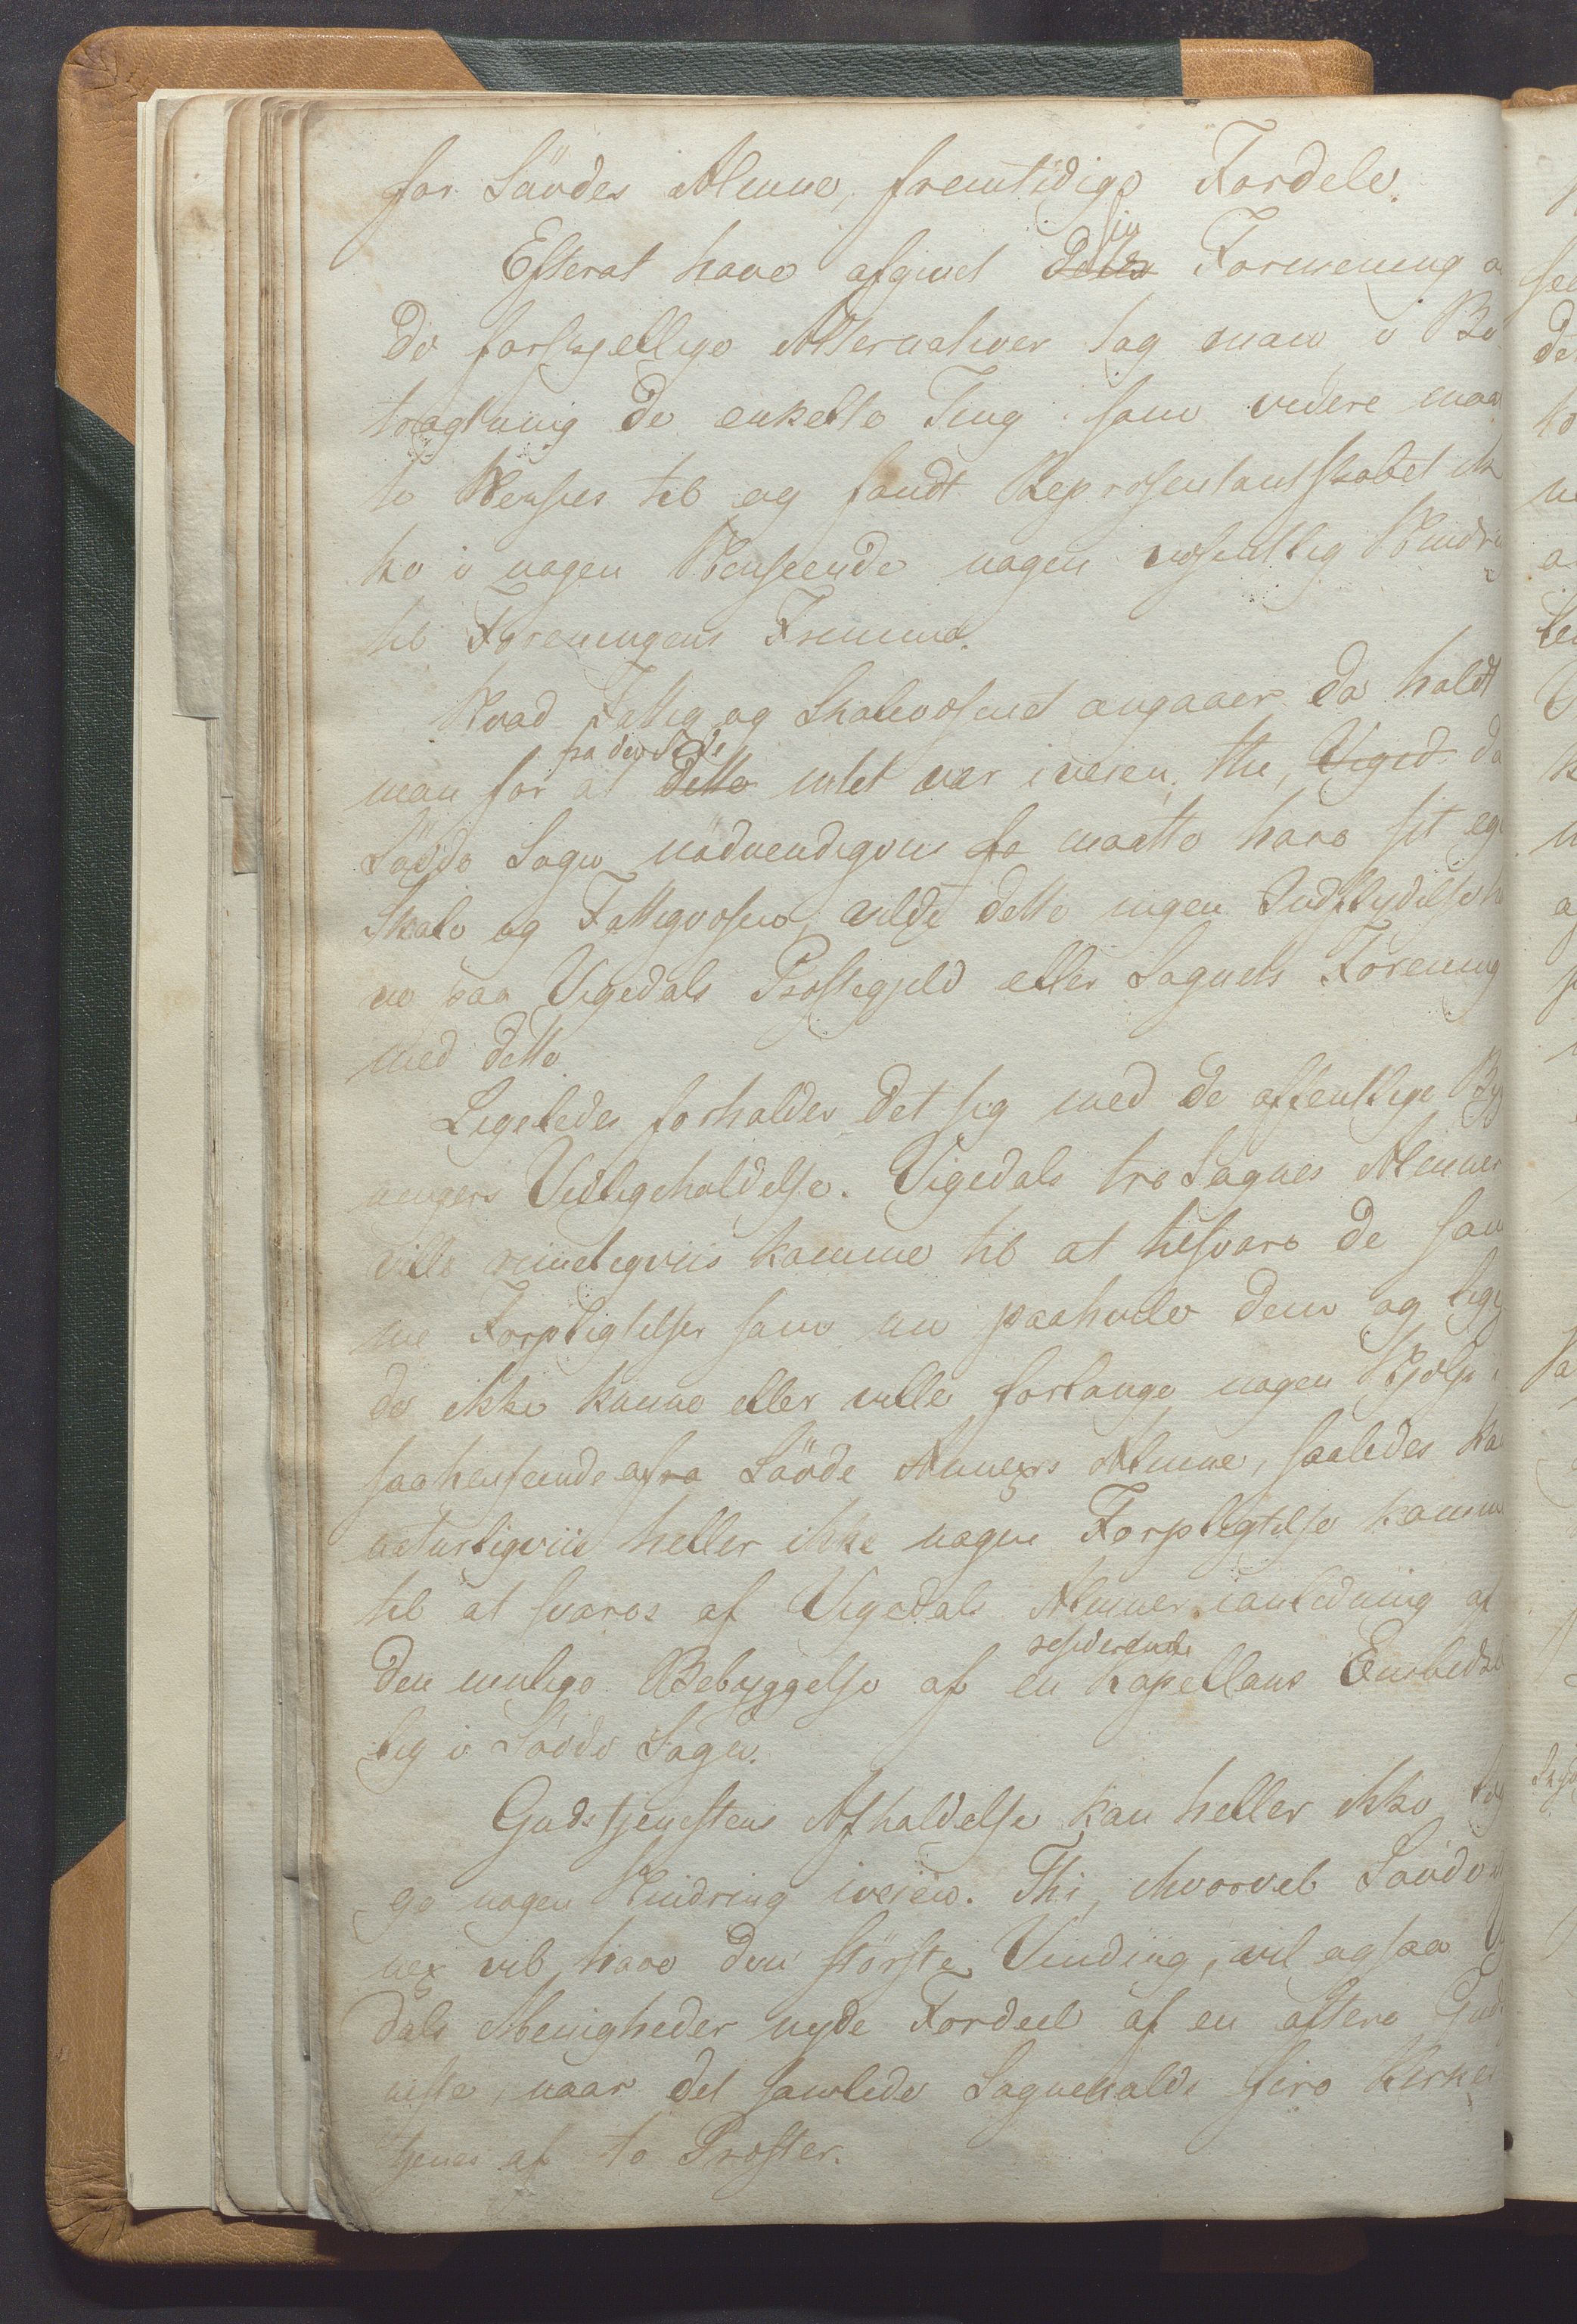 for Søvdes Almue, fremtidige Fordele.
Efterat have afgivet dets sin Formening o
de forskjellige Alternativer tog man i Be
tragtning de enkelte Ting som videre maat
te Henses til og fandt Repræsentantskabet ik
ke i nogen Henseende nogen væsentlig Hindri
til Foreningens Fremme.
Hvad Fattig og Skolevæsenet angaaer da holdt
man for at dette fra den Side intet var iveien, thi, Viged da
Søvde Sogn nødvendigviis fo maatte have sit eg
Skole og Fattigvæsen, vilde dette ingen Indflydelse ha
ve paa Vigedals Præstegjeld eller Sognets Forening
med dette.
Ligeledes forholder det sig med de offentlige Byg
ningers Vedligeholdelse. Vigedals tre Sognes Almuer
ville rimeligviis komme til at tilsvare de sam
me Forpligtelser som nu paahvile dem og lige
de ikke kunne eller ville forlange nogen Hjelp i
saahenseende afra Søvde Annexs Almue, saaledes ka
naturligviis heller ikke nogen Forpligtelse komm
til at svares af Vigedals Almuer ianledning af
den mulige Bebyggelse af en residerende Kapellans Embedsbo
lig i Søvde Sogn.
Gudstjenestens Afholdelse kan heller ikke læg
ge nogen Hindring iveien. Thi, ihvorvel Søvde An
nex vil have den største Vinding, vil ogsaa Vi
dals Menigheder nyde Fordeel af en oftere Gudstje
neste, naar det samlede Sognekalds fire Kirker
tjenes af to Præster.